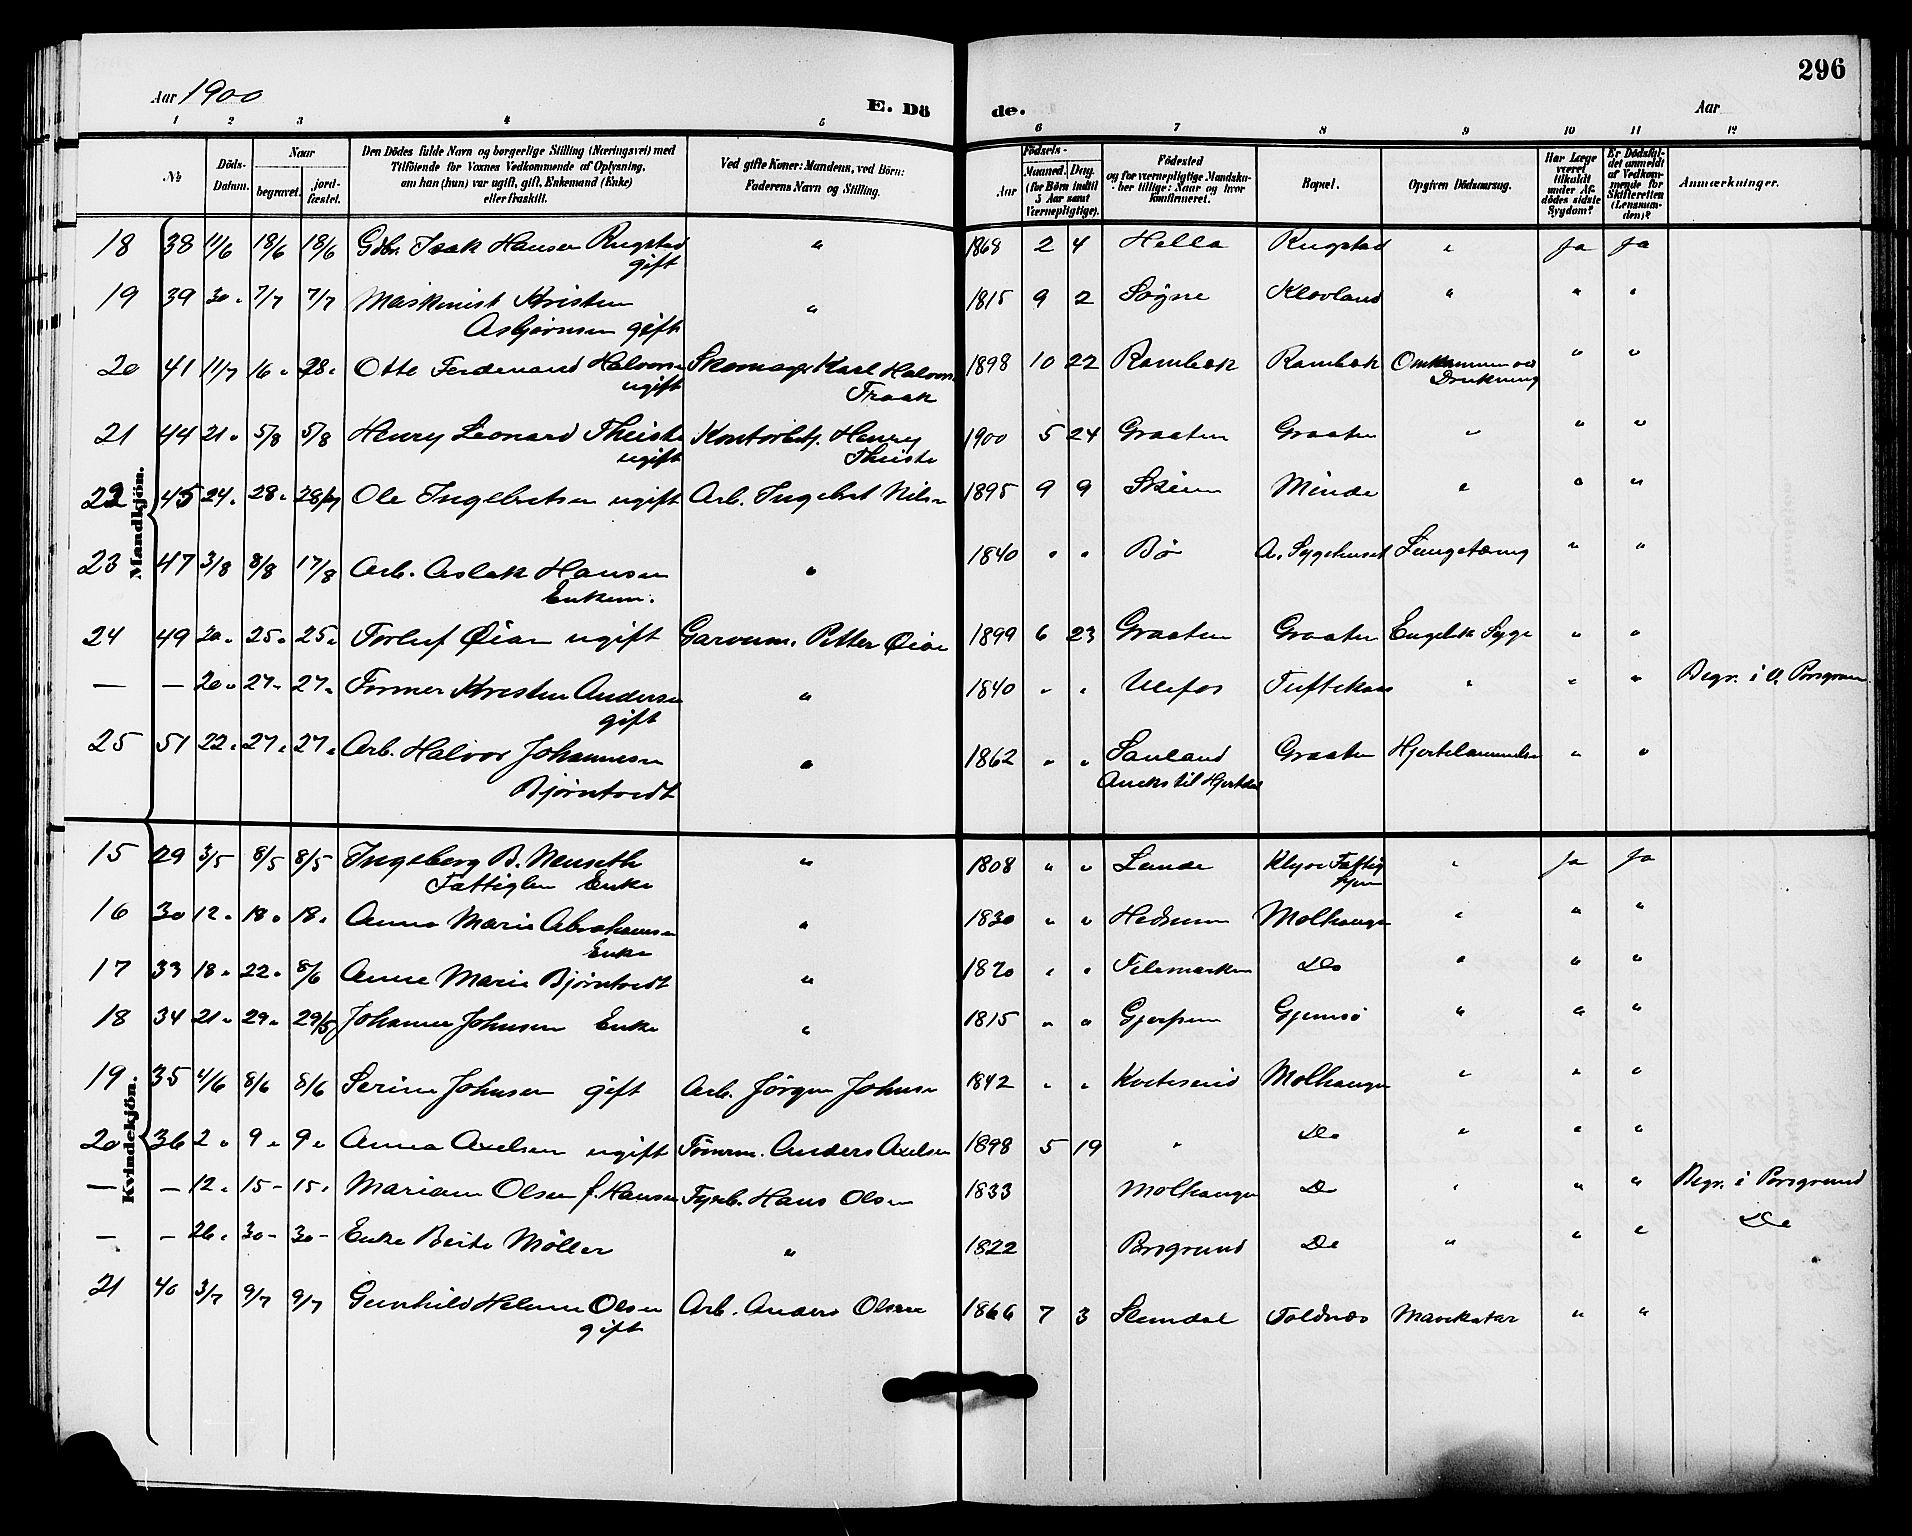 296
Aar 1900
E. Dö
de.
Aar
1 2 3 4 5 6 7 8 9 10 11 12
No
Döds-Datum.
Naar
begravet.
jord-fæstet.
Den Dödes fulde Navn og borgerlige Stilling (Næringsvei) med
Tilföiende for Voxnes Vedkommende af Oplysning,
om han (hun) var ugift, gift, Enkemand (Enke)
eller fraskilt.
Ved gifte Koner: Mandens, ved Börn:
Faderens Navn og Stilling.
Födsels-
Aar
Maaned. Dag.
(for Börn indtil
5 Aar samt
Værnepligtige).
Födested
og for værnepligtige Mandsku-
ber tillige: Naar og hvor
konfirmeret.
Bopæl.
Opgiven Dödsaarsag.
Har Læge
været
tilkaldt
under Af-
dödes sidste
Sygdom?
Er Dödsfal-
det anmeldt
af Vedkom-
mende for
Skifteretten
(Lensman-
den)?
Anmærkninger.
Mandkjön.
18 38 11/6 18/6 18/6 Gdbr. Isak Hansen Rugstad " 1868 2 4 Hella Rugstad " Ja Ja
gift
19 39 30 " 7/7 7/7 Maskinist Kristen " 1815 9 2 Søgne Klovland " " "
Asbjørnsen gift
20 41 11/7 16 " 28 " Otto Ferdinand Halvorsen Skomager Karl Halvors. 1898 10 22 Rambæk Rambæk Omkommen ved " "
ugift Traak Drukning
21 44 21 " 5/8 5/8 Henry Leonard Theiste Kontorbetj. Henry 1900 5 24 Graaten Graaten " " "
ugift Theiste
22 45 24 " 28 " 28/7 Ole Ingebretsen ugift Arb. Ingebret Nilsen 1895 9 9 Skien Minde " " "
23 47 3/8 8/8 17/8 Arb. Aslak Hansen " 1840 " " Bø A. Sygehuset Lungetæring " "
Enkem.
24 49 20 " 25 " 25 " Torluf Øian ugift Garverm. Petter Øian 1899 6 23 Graaten Graaten Engelsk Syge " "
— — 20 " 27 - 27 " Former Kristen Andersen " 1840 " " Ulefos Tuftekas " " " Begr. i V. Porsgrun
gift
25 51 22 " 27 " 27 " Arb. Halvor Johannesen " 1862 " " Sauland Graaten Hjertelammelse " "
Bjørntvedt Aneks til Hjertdal
Kvindekjön.
15 29 3/5 8/5 8/5 Ingeborg B. Nenseth " 1808 " " Lunde Klyve Fattig " Ja Ja
Fattiglem Enke hjem
16 30 12 " 18 " 18 " Anna Marie Abrahamsen " 1830 " " Hedrum Molhaugen " " "
Enke
17 33 18 " 22 " 8/6 Anne Marie Bjørntvedt " 1820 " " Telemarken Do " " "
18 34 21 " 29 " 29/5 Johanne Johnsen Enke " 1815 " " Gjerpen Gjemsø " " "
19 35 4/6 8/6 8/6 Serine Johnsen gift Arb. Jørgen Johnsen 1842 " " Kviteseid Molhaugen " " "
20 36 2 " 9 " 9 " Anna Axelsen ugift Tømrm. Anders Axelsen 1898 5 19 " Do " " "
— — 12 " 15 - 15 " Mariam Olsen f. Hansen Fyrb. Hans Olsen 1833 Molhaugen Do " " " Begr. i Porsgrund
— — 26 " 30 - 30 - Enke Berte Møller " 1822 Porsgrund Do " " " Do
21 40 3/7 9/7 9/7 Gunhild Helene Olsen Arb. Anders Olsen 1866 7 3 Slemdal Toldnæs Mavekatar " "
gift